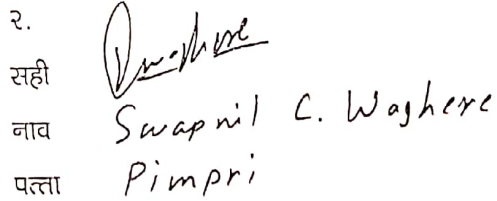 २.
सही
नाव Swapnil C. Waghere
पत्ता Pimpri